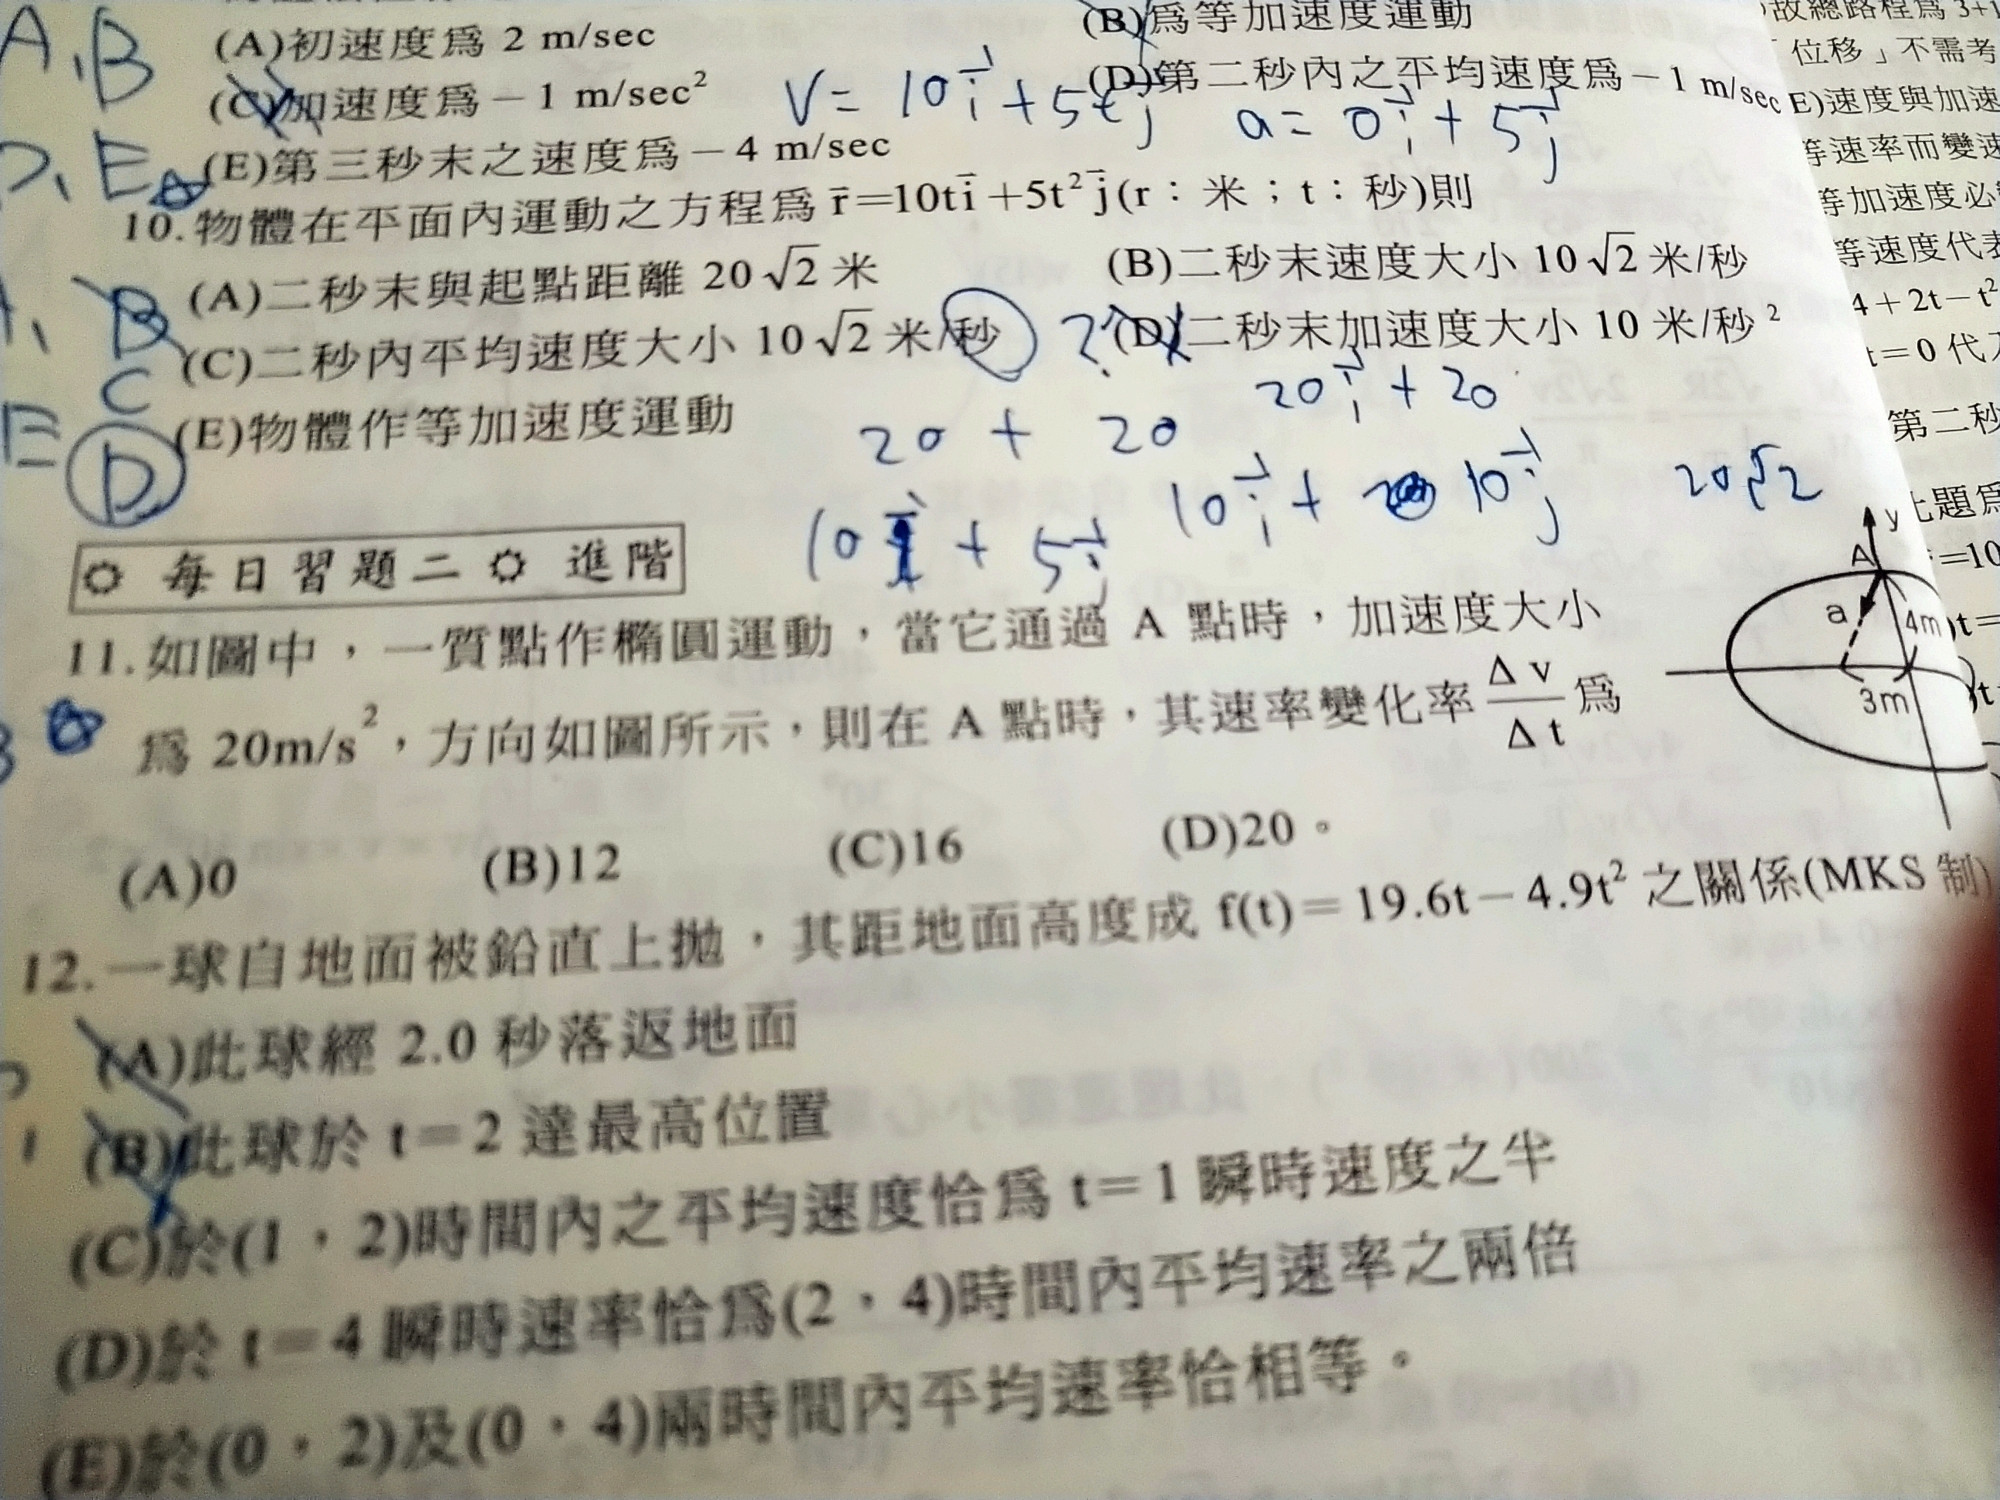 A、B
(A)初速度爲 2 m/sec
(B)爲等加速度運動
(C)加速度爲－1 m/sec²
(D)第二秒內之平均速度爲－1 m/sec
V= 10i + 5tj
a= 0i + 5j
D、E
(E)第三秒末之速度爲－4 m/sec
10.物體在平面內運動之方程爲 r̄=10t ī+5t² j̄(r：米；t：秒)則
(A)二秒末與起點距離 20√2 米
(B)二秒末速度大小 10√2 米/秒
(C)二秒內平均速度大小 10√2 米/秒
??
(D)二秒末加速度大小 10 米/秒²
B
C
E
D
(E)物體作等加速度運動
20 + 20
20i + 20
10i + 5j
10i + 10j
20√2
每日習題二 進階
11.如圖中，一質點作橢圓運動，當它通過 A 點時，加速度大小
爲 20m/s²，方向如圖所示，則在 A 點時，其速率變化率 Δv/Δt 爲
y
A
a
4m
3m
(A)0 (B)12 (C)16 (D)20。
12.一球自地面被鉛直上拋，其距地面高度成 f(t)＝19.6t－4.9t² 之關係(MKS 制)
(A)此球經 2.0 秒落返地面
(B)此球於 t＝2 達最高位置
(C)於(1，2)時間內之平均速度恰爲 t＝1 瞬時速度之半
(D)於 t＝4 瞬時速率恰爲(2，4)時間內平均速率之兩倍
(E)於(0，2)及(0，4)兩時間內平均速率恰相等。
故總路程爲 3+1
「位移」不需考
E)速度與加速
等速率而變速
等加速度必
等速度代表
4＋2t－t²
t＝0 代入
第二秒
此題爲
=10
t=